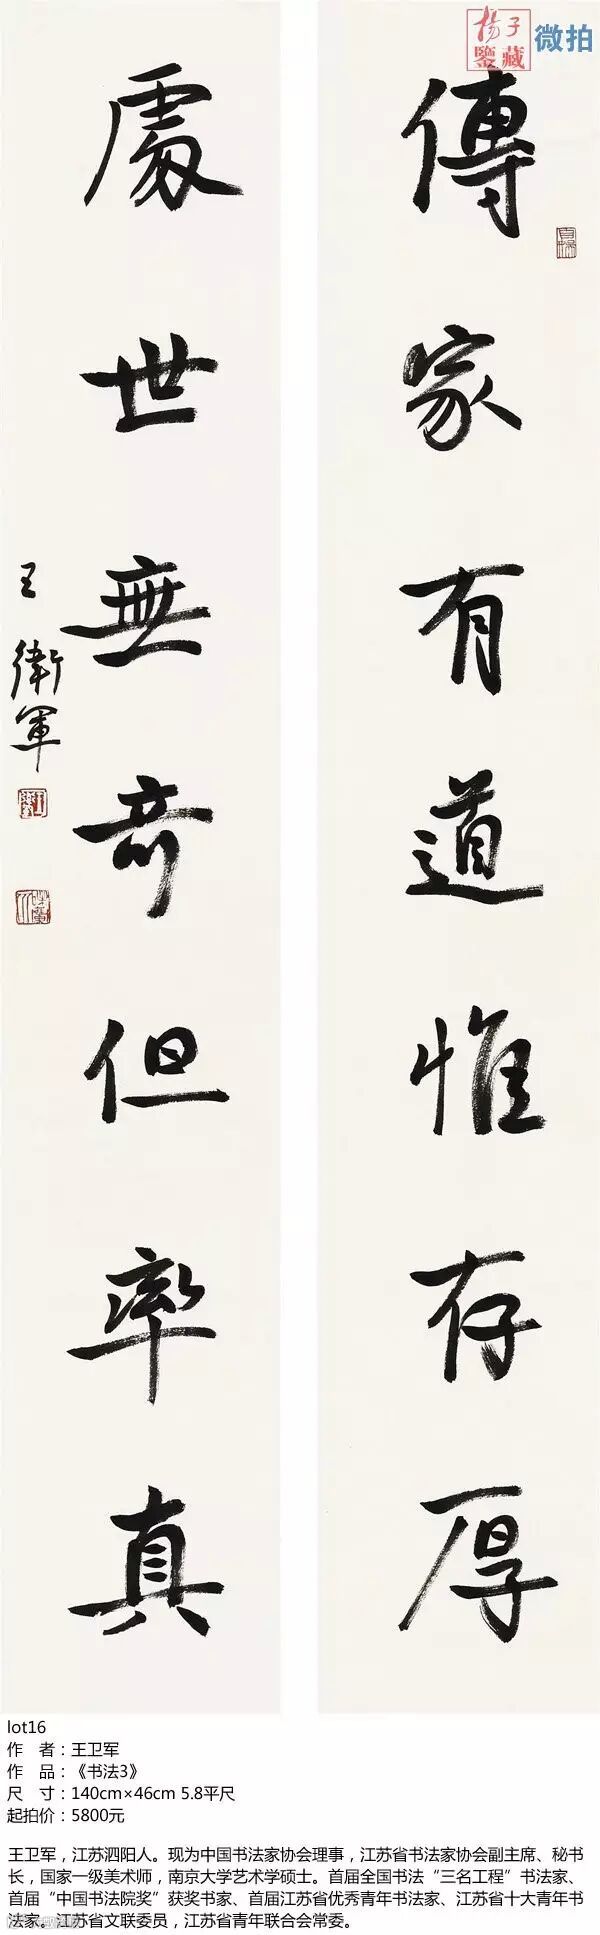 揚子
鑒藏
微拍
傳家有道惟存厚
處世無奇但率真
王衛軍
lot16
作 者：王卫军
作 品：《书法3》
尺 寸：140cm×46cm 5.8平尺
起拍价：5800元
王卫军，江苏泗阳人。现为中国书法家协会理事，江苏省书法家协会副主席、秘书
长，国家一级美术师，南京大学艺术学硕士。首届全国书法“三名工程”书法家、
首届“中国书法院奖”获奖书家、首届江苏省优秀青年书法家、江苏省十大青年书
法家。江苏省文联委员，江苏省青年联合会常委。